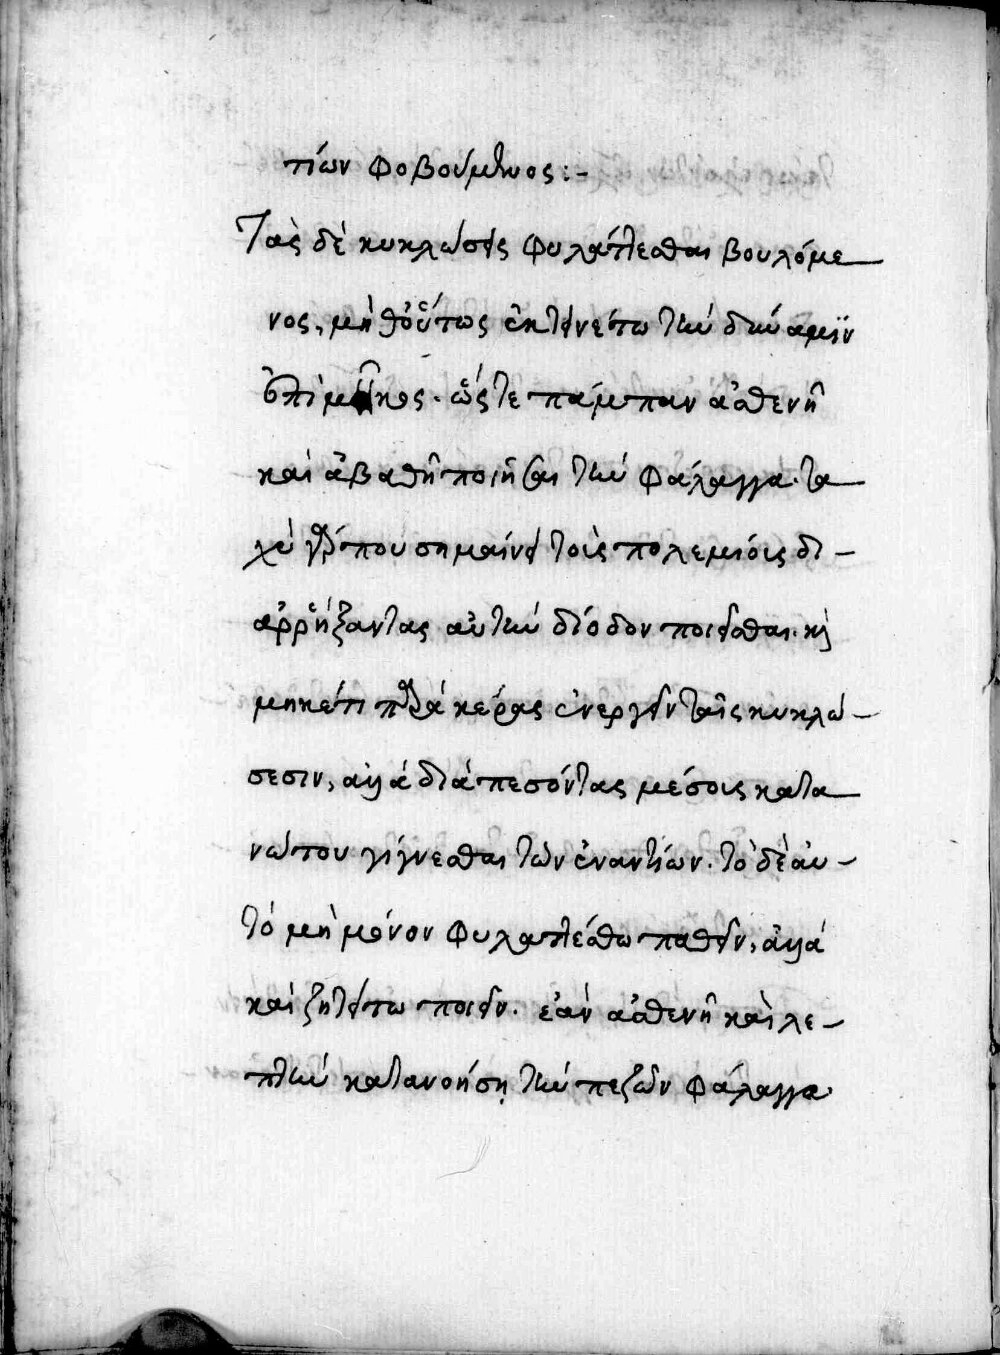 τίων φοβούμενος:-
Τὰς δὲ κυκλώσεις φυλάττεσθαι βουλόμε
νος, μὴ θ' οὕτως ἐκτεινέτω τὴν δύναμϊν
ἐπὶ μῆκος. ὥς τε πάμπαν ἀσθενῆ
καὶ ἀβαθῆ ποιῆσαι τὴν φάλαγγα. τα
χὺ γάρ που σημαίνει τοὺς πολεμίοις δι-
αῤῥήξαντας αὐτὴν δίοδον ποιεῖσθαι. καὶ
μηκέτι παρὰ κέρας ἐνεργεῖν ταῖς κυκλώ-
σεσιν, ἀλλὰ διὰ πεσόντας μέσοις κατα
νώτου γίγνεσθαι τῶν ἐναντίων. τὸ δὲ αὐ-
τὸ μὴ μόνον φυλαττέσθω παθεῖν, ἀλλὰ
καὶ ζητείτω ποιεῖν. ἐὰν ἀσθενῆ καὶ λε-
πτὴν κατανοήσῃ τὴν πεζῶν φάλαγγα